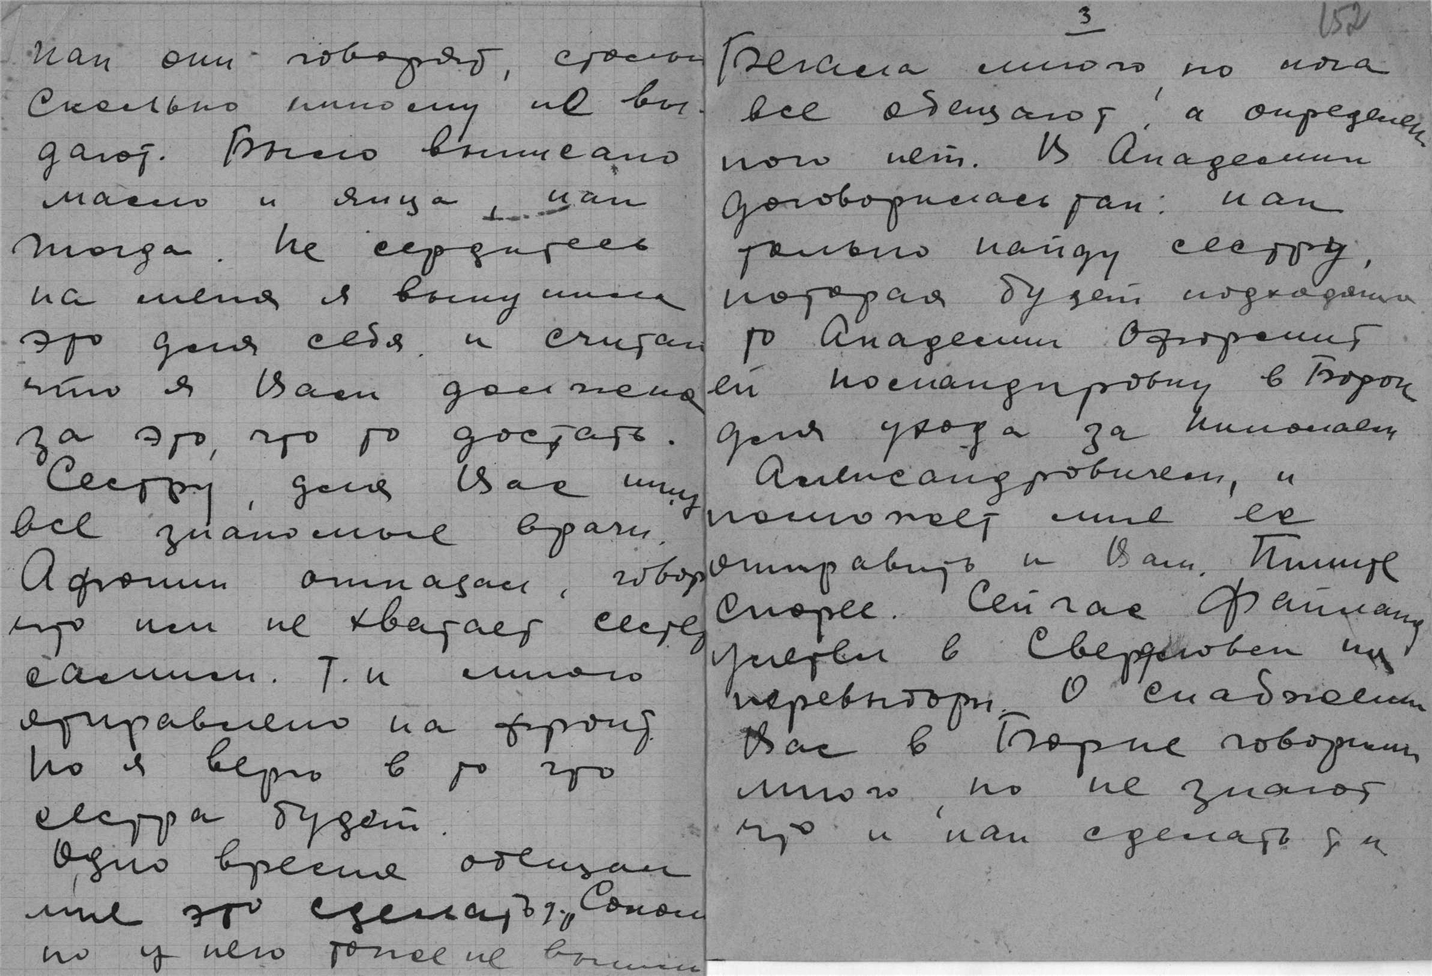 как они говорят, столько
сколько никому не вы-
дают. Было выписано
масло и яйца, как
тогда. Не сердитесь
на меня я выкупила
это для себя и считаю
что я Вам должена
за это, что то достать.
Сестру, для Вас ищут
все знакомые врачи.
Афонин отказал, говор
что им не хватает сестер
самим. Т.к много
отправлено на фронт
Но я верю в то что
сестра будет.
Одно время обещал
мне это сделать д. Сокол
но у него тоже не вышл
3
152
Бегала много, но пока
все обещают, а определен
ного нет. В Академии
договорилась так: как
только найду сестру,
которая будет подходяща
то Академии Оформит
ей командировку в Борок
для ухода за Николаем
Александровичем, и
поможет мне ее
отправить к Вам. Пишите
скорее. Сейчас
улетел в Свердловск на
перевыборы. О снабжении
Вас в Борке говорили
много, но не знают
что и как сделать т к